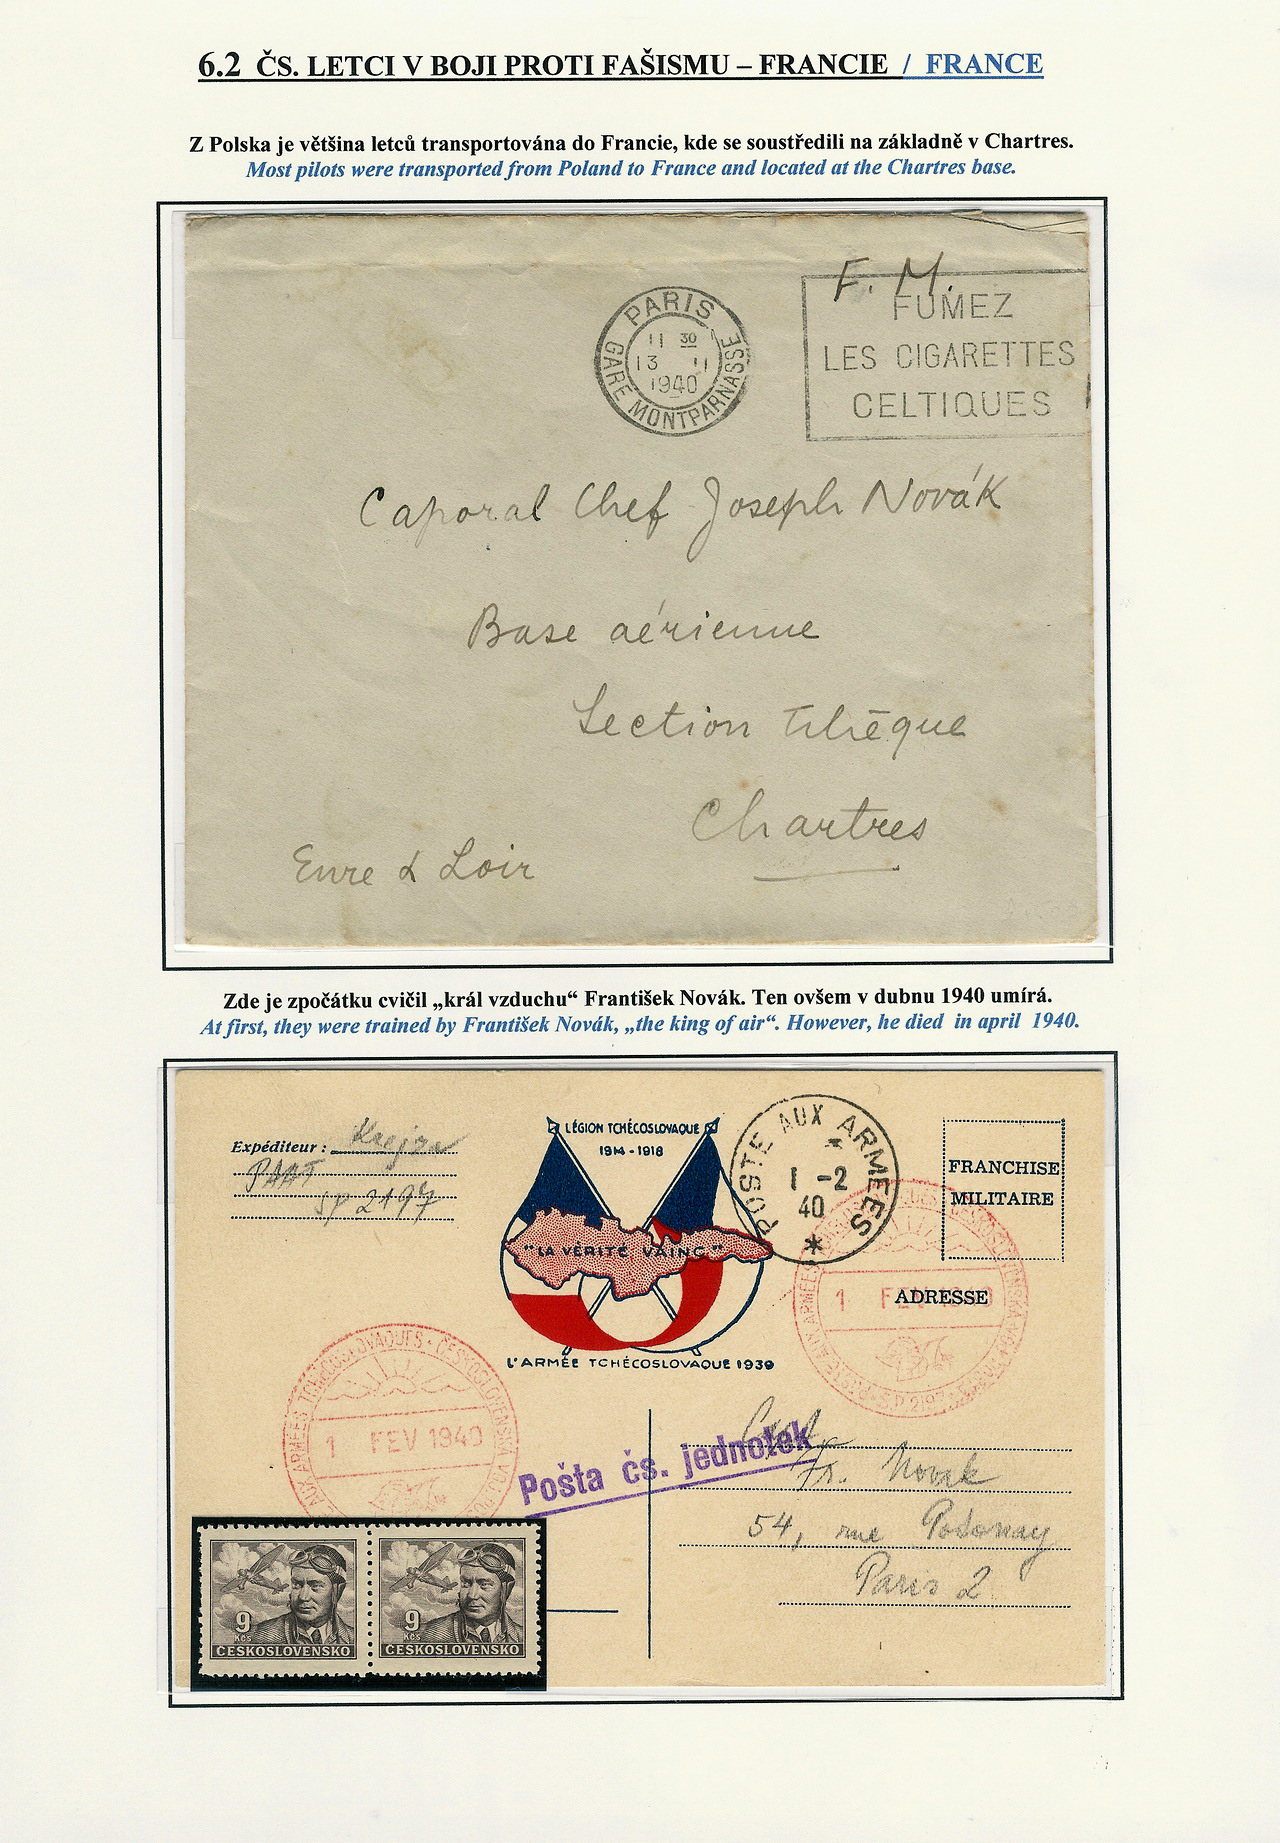 6.2 ČS. LETCI V BOJI PROTI FAŠISMU – FRANCIE / FRANCE
Z Polska je většina letců transportována do Francie, kde se soustředili na základně v Chartres.
Most pilots were transported from Poland to France and located at the Chartres base.
F. M.
PARIS
GARE MONTPARNASSE
11 30
13 11
1940
FUMEZ
LES CIGARETTES
CELTIQUES
Caporal Chef Joseph Novák
Base aérienne
Section Tchèque
Chartres
Eure & Loir
Zde je zpočátku cvičil „král vzduchu“ František Novák. Ten ovšem v dubnu 1940 umírá.
At first, they were trained by František Novák, „the king of air“. However, he died in april 1940.
Expéditeur : Krejza
SP 2197
LÉGION TCHÉCOSLOVAQUE
1914 - 1918
"LA VÉRITÉ VAINC"
L'ARMÉE TCHÉCOSLOVAQUE 1939
POSTE AUX ARMÉES
1 -2
40
*
FRANCHISE
MILITAIRE
ADRESSE
1 FEV 1940
S.P. 2197
AUX ARMÉES TCHÉCOSLOVAQUES - ČESKOSLOVENSKÁ
1 FEV 1940
Pošta čs. jednotek
Fr. Novak
54, rue
Paris 2
9
Kčs
ČESKOSLOVENSKO
9
Kčs
ČESKOSLOVENSKO